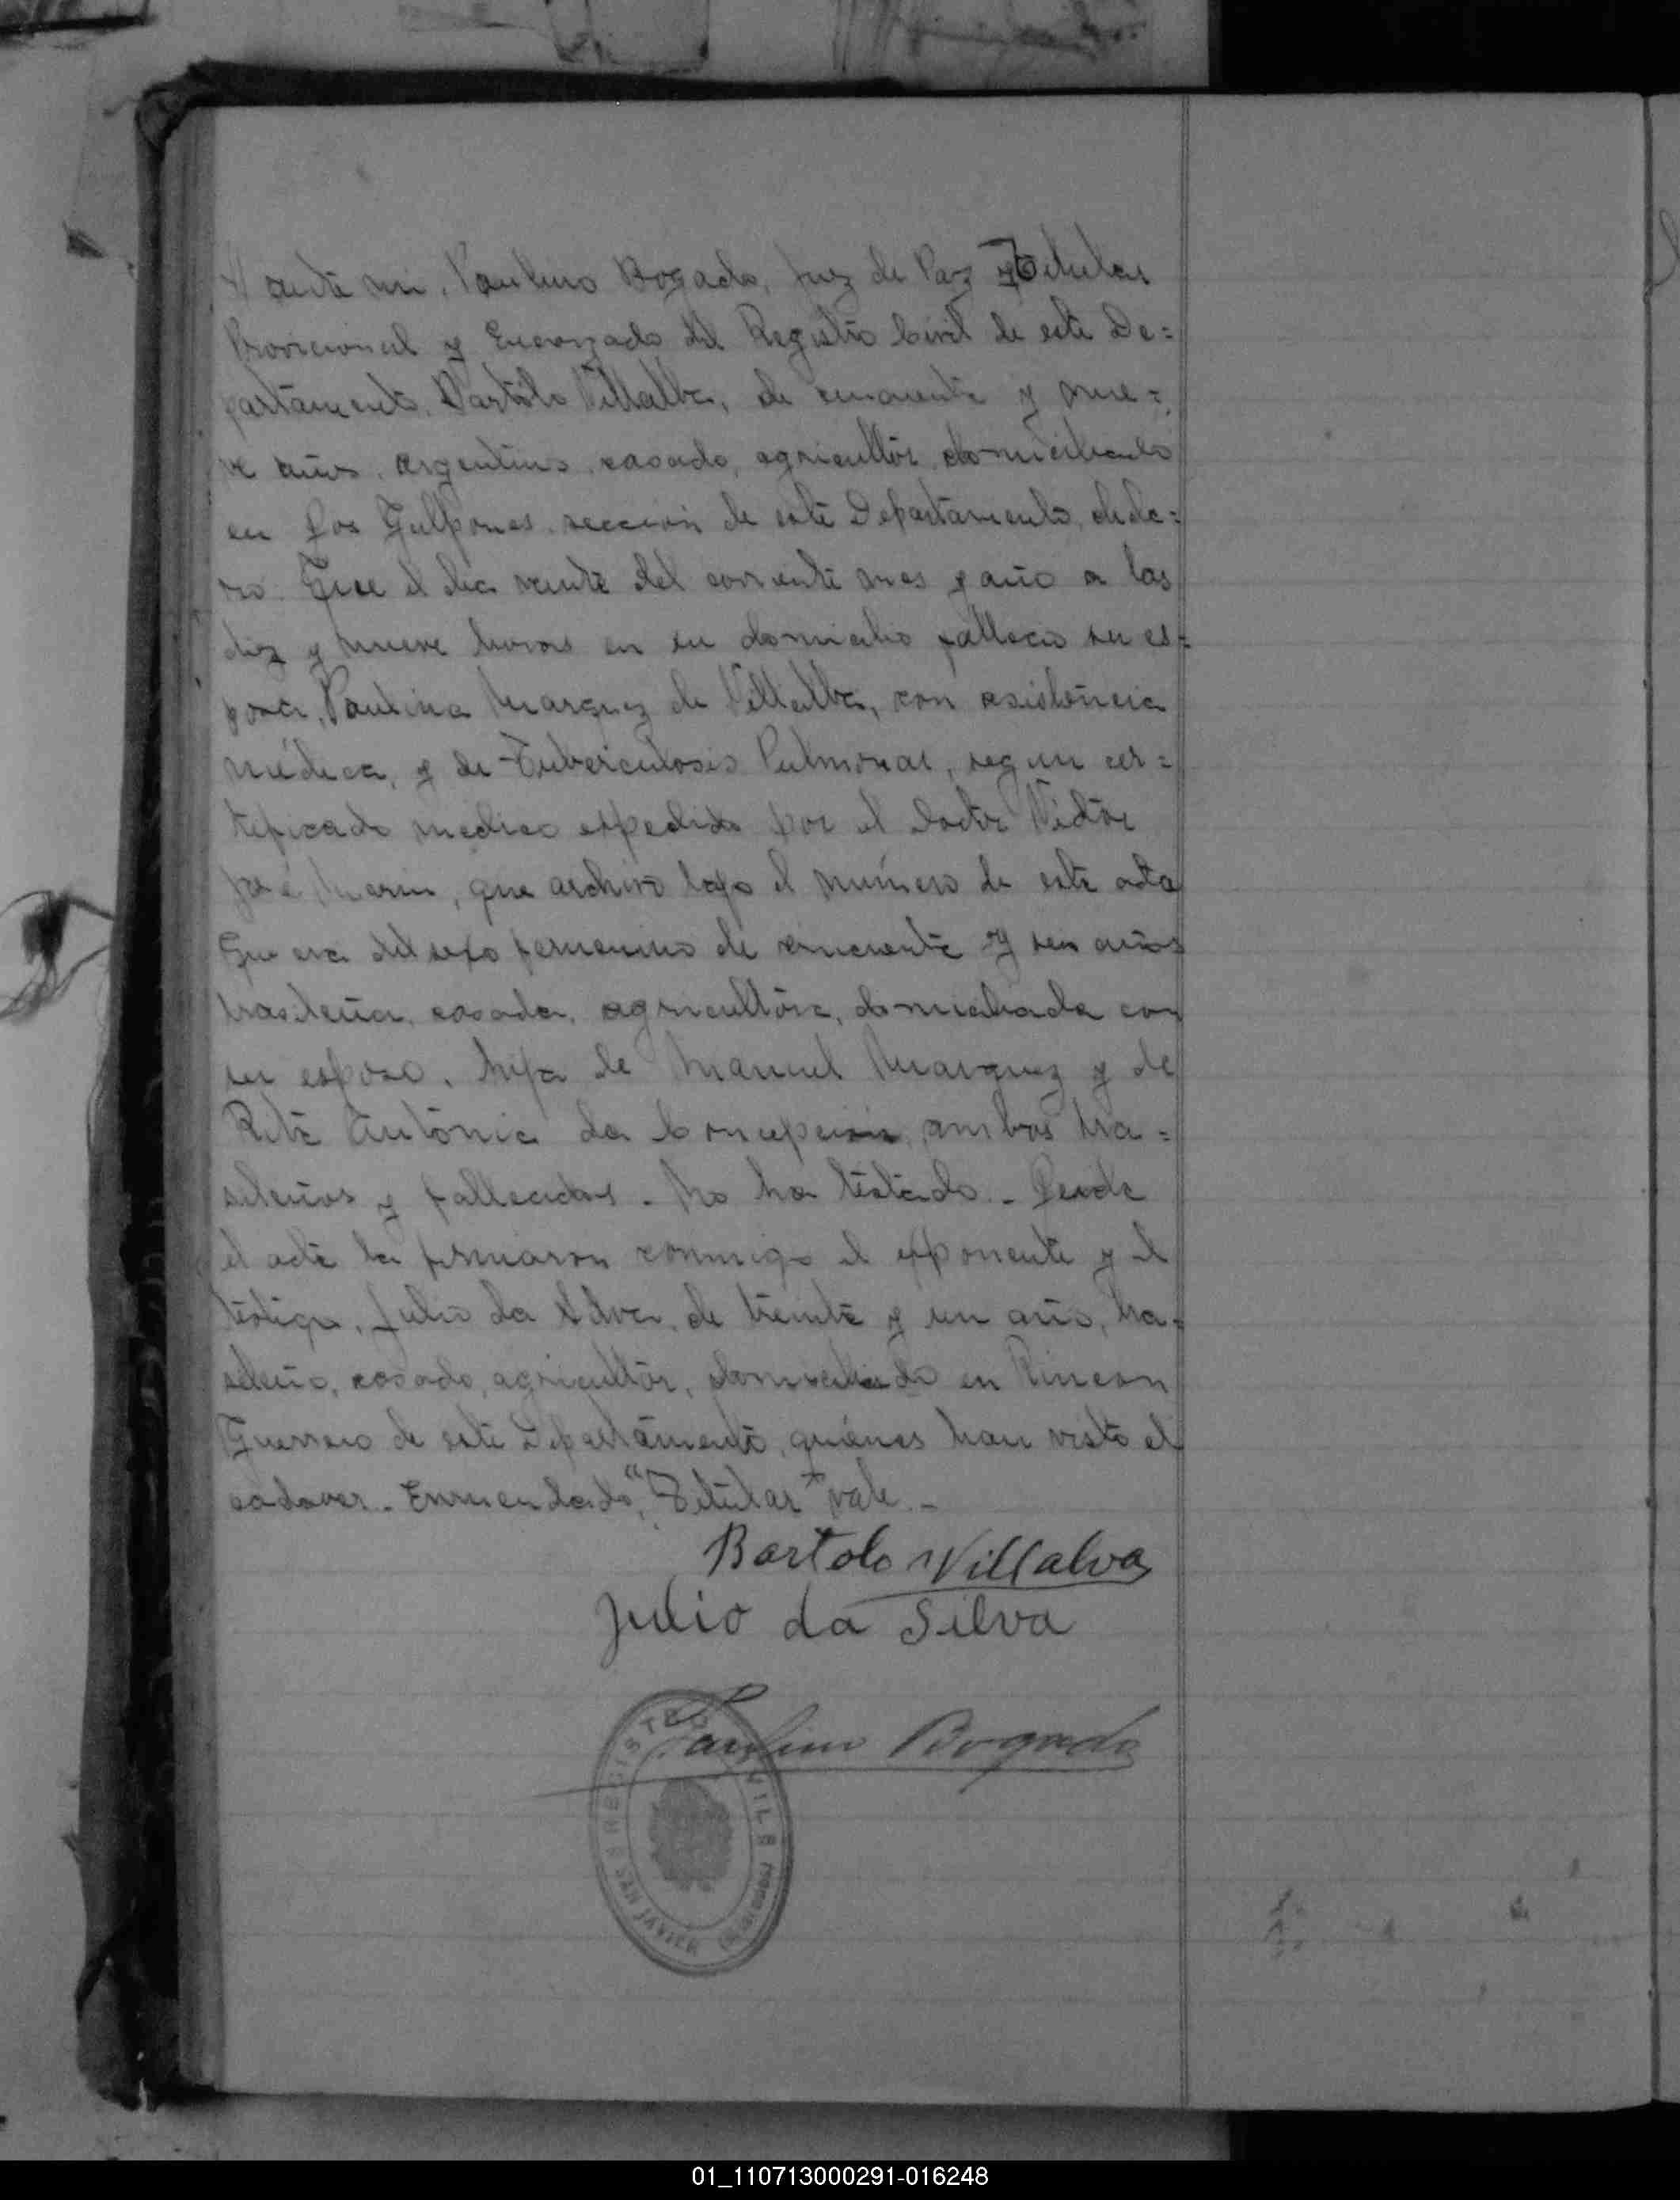 ante mi, Paulino Bogado, Juez de Paz Titular
Provicional y Encargado del Registro Civil de este De=
partamento, Bartólo Villalba, de cincuenta y nue=
ve años, argentino, casado, agricultór, domiciliado
en Los Galpones, seccion de este Departamento, decla=
ro: Que el dia veinte del corriente mes y año a las
diez y nueve horas en su domicilio fallecio su es=
posa, Paulina Marquez de Villalba, con asisténcia
médica, y de Tuberculosis Pulmonar, segun cer=
tificado medico expedido por el doctor Victór
José Marin, que archivo bajo el número de este acta
Que era del sexo femenino de cincuenta y seis años
brasileña, casada, agricultóra, domiciliada con
su esposo, hija de Manuel Marquez y de
Rita António da Concepcion, ambos bra=
sileños y fallecidos. No ha téstado. Leida
el acta la firmaron conmigo el exponente y el
téstigo, Julio da Silva, de treinta y un año, bra=
sileño, casado, agricultór, domiciliado en Rincon
Guerrero de este Departamento, quiénes han visto el
cadaver. Enmendado, "Titular" vale.-
Bartolo Villalva
Julio da Silva
Paulino Bogado
REGISTRO CIVIL
SAN JAVIER (MISIONES)
01_110713000291-016248